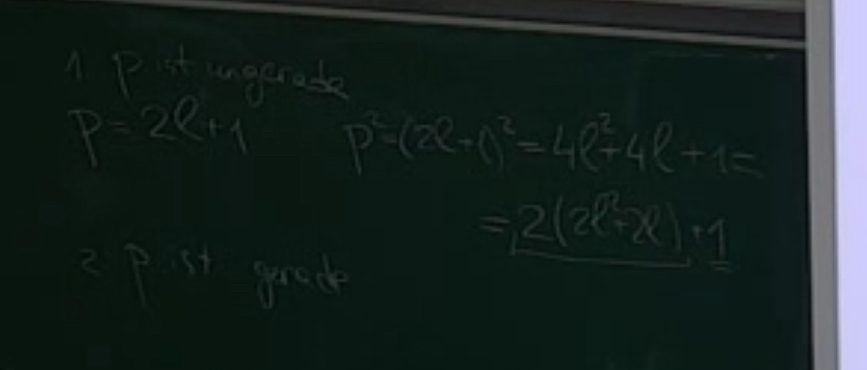 1. p ist ungerade
p=2l+1 p²=(2l+1)²=4l²+4l+1=
=2(2l²+2l)+1
2 p ist gerade